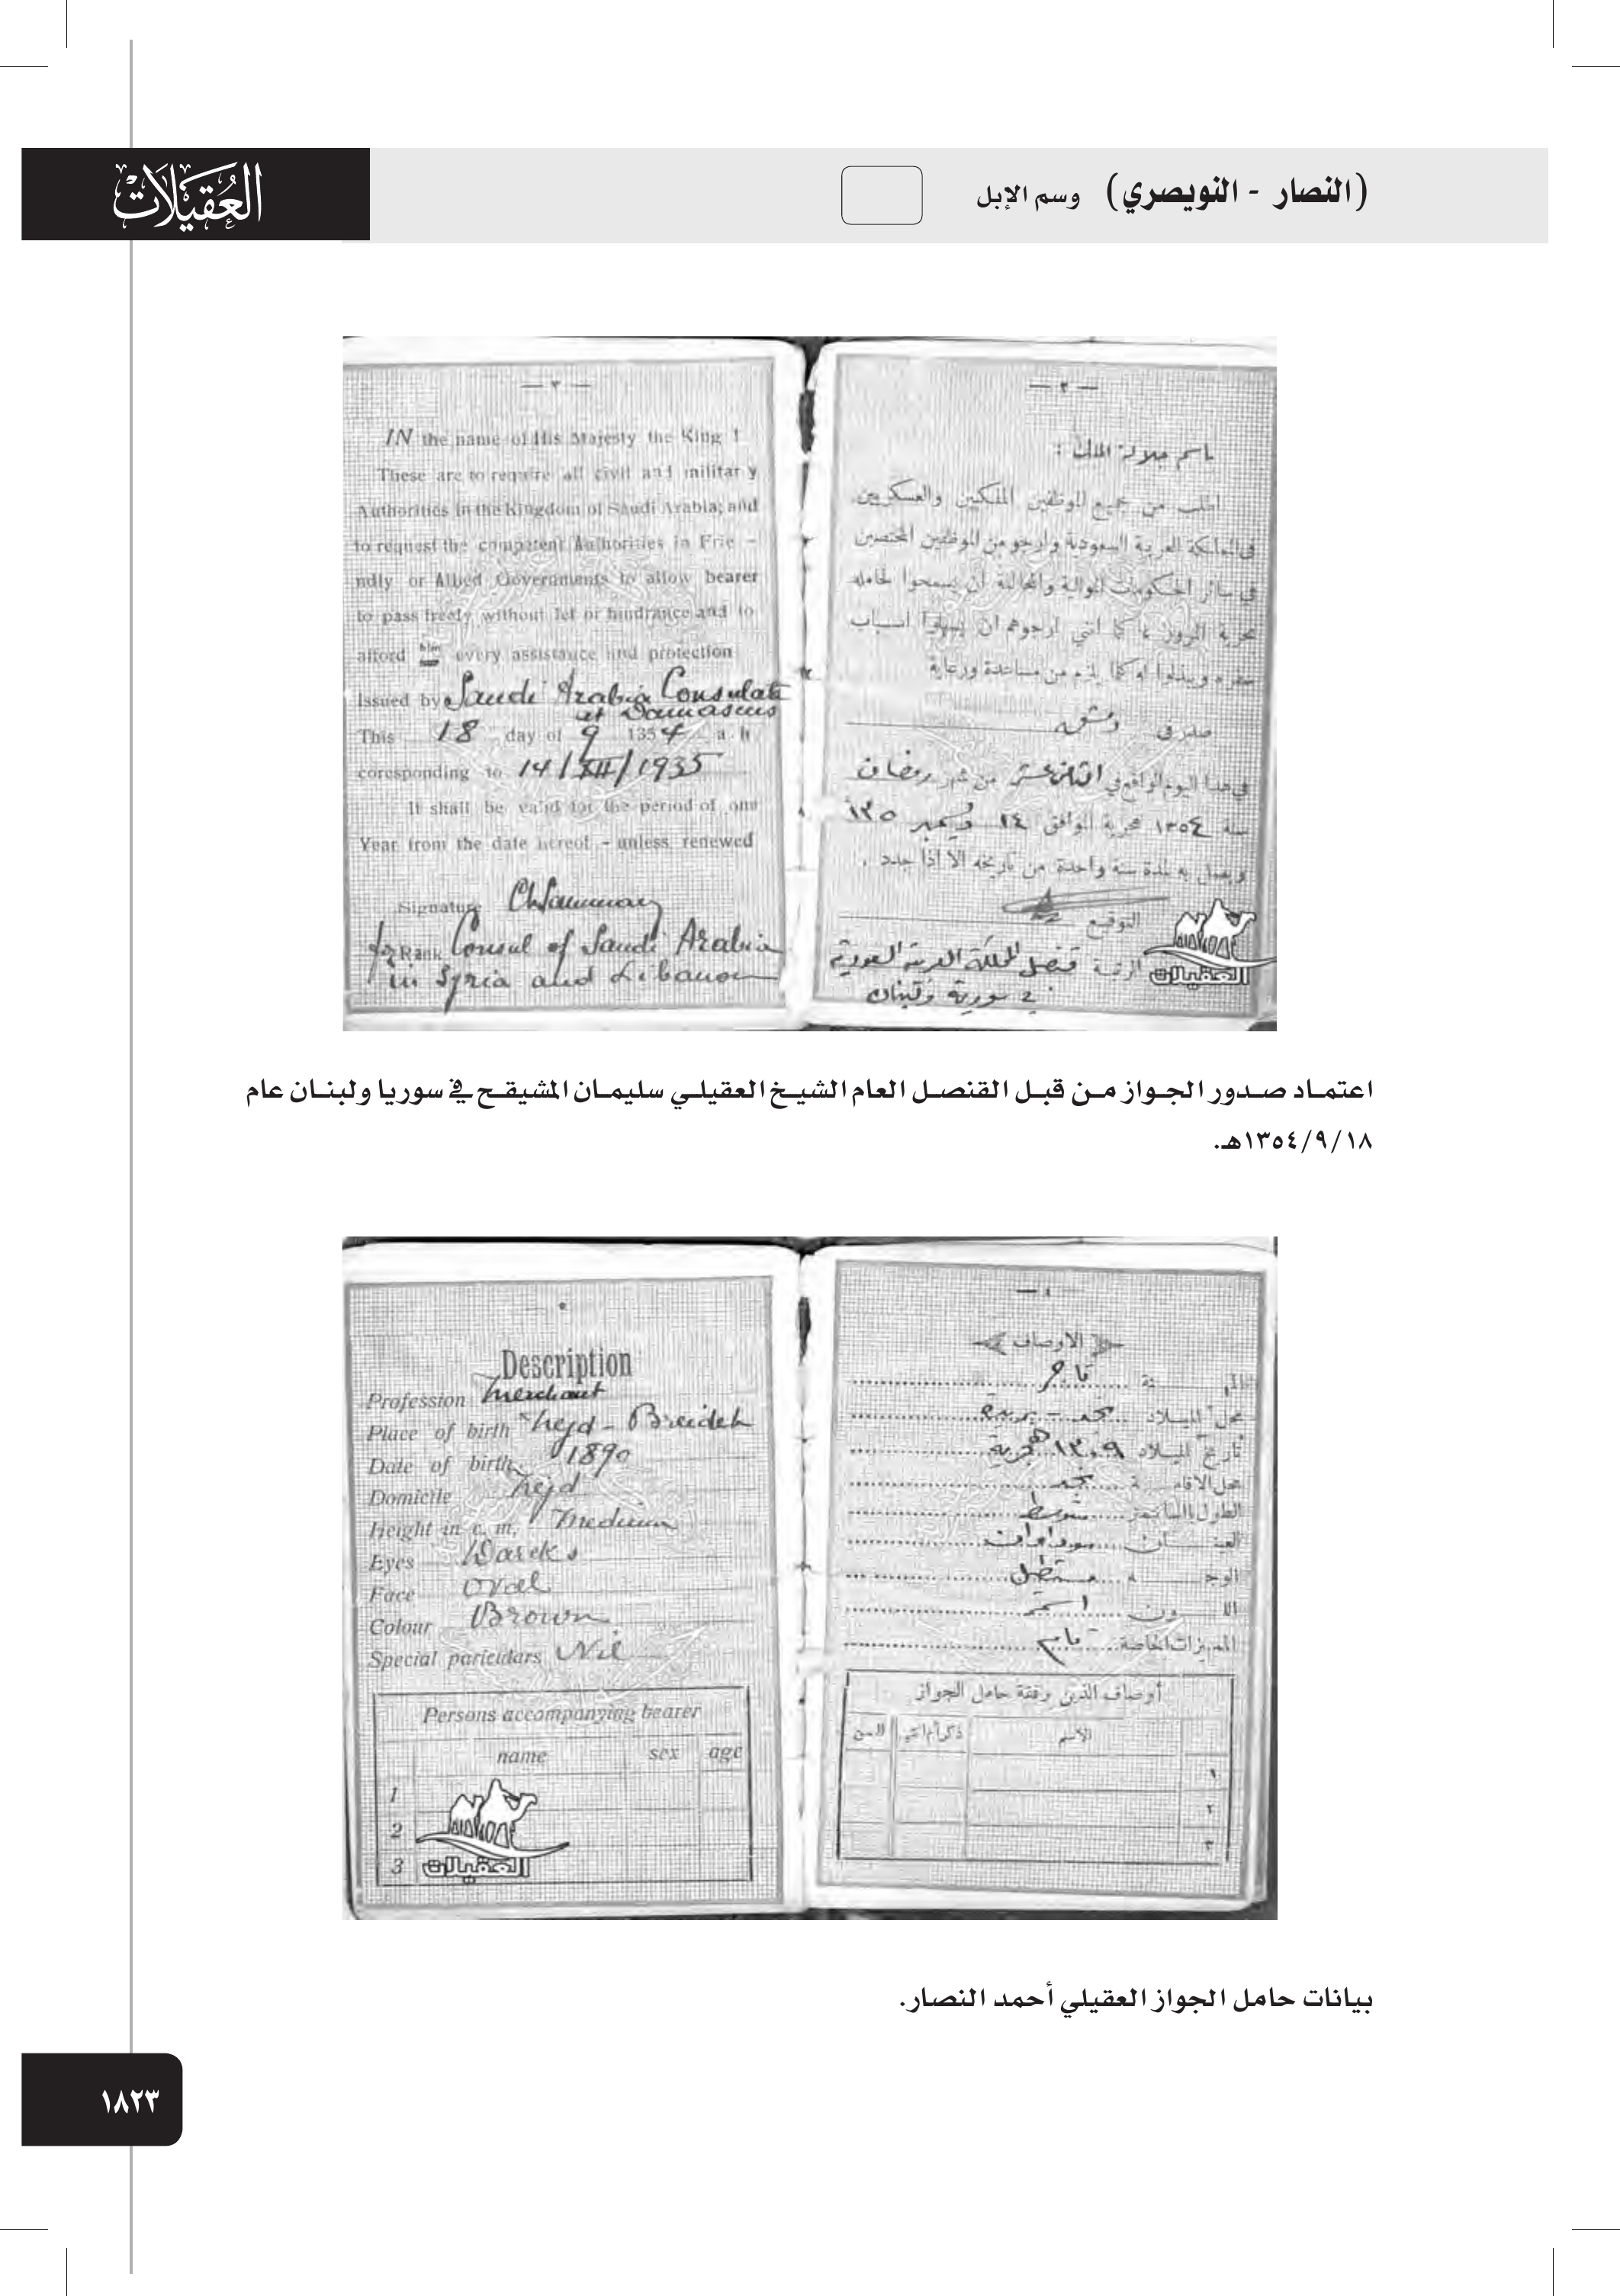 (النصار - النويصري) وسم الإبل
العقيلات
— ٢ —
باسم جلالة الملك :
اطلب من جميع الموظفين الملكيين والعسكريين
في المملكة العربية السعودية وارجو من الموظفين المختصين
في سائر الحكومات الموالية والمحالفة أن يسمحوا لحامله
بحرية المرور كما انني ارجوهم ان يسهلوا اسباب
سفره ويبذلوا له كلما يلزم من مساعدة ورعاية
صدر في دمشق
في هذا اليوم الواقع في الثامن عشر من شهر رمضان
سنة ١٣٥٤ هجرية الموافق ١٤ ديسمبر
ويعمل به لمدة سنة واحدة من تاريخه الا اذا جدد .
التوقيع
الرتبة قنصل المملكة العربية السعودية
في سورية ولبنان
العقيلات
— ٣ —
IN the name of His Majesty the King !
These are to require all civil and militar y
Authorities in the Kingdom of Saudi Arabia; and
to request the competent Authorities in Frie -
ndly or Allied Governments to allow bearer
to pass freely without let or hindrance and to
afford him every assistance and protection
Issued by Saudi Arabia Consulate
at Damascus
This 18 day of 9 1354 a. h
coresponding to 14/XII/1935
It shall be valid for the period of one
Year from the date hereof - unless renewed
Signature
Rank Consul of Saudi Arabia
in Syria and Libanon
اعتماد صدور الجواز من قبل القنصل العام الشيخ العقيلي سليمان المشيقح في سوريا ولبنان عام
١٣٥٤/٩/١٨هـ.
— ٤ —
الاوصاف
المهنة تاجر
محل الميلاد نجد - بريدة
تاريخ الميلاد ١٣٠٩ هجرية
محل الاقامة نجد
الطول متوسط
العينان سوداوان
الوجه مستطيل
اللون اسمر
المميزات الخاصة تام
أوصاف الذين رفقة حامل الجواز
الاسم ذكر أم انثى السن
١
٢
٣
٥
Description
Profession Merchant
Place of birth Nejd - Breideh
Date of birth 1890
Domicile Nejd
Height in c. m. Medium
Eyes Darcks
Face Oval
Colour Brown
Special pariculars Nil
Persons accompanying bearer
name sex age
1
2
3
العقيلات
بيانات حامل الجواز العقيلي أحمد النصار.
١٨٢٣